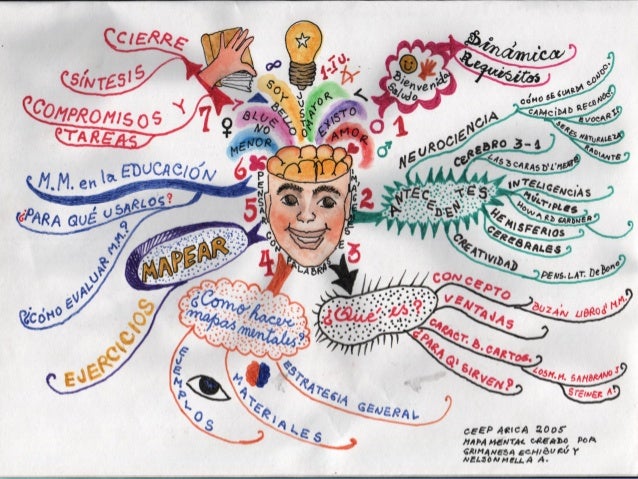 1
Bienvenida
Saludo
Dinámica
Requisitos
2
ANTECEDENTES
NEUROCIENCIA
CÓMO SE GUARDA CONOC.
CAPACIDAD RECONOC
EVOCAR
SERES NATURALEZA
RADIANTE
CEREBRO 3-1
LAS 3 CARAS D'L'MENTE
INTELIGENCIAS
MÚLTIPLES
HOWARD GARDNER
HEMISFERIOS
CEREBRALES
CREATIVIDAD
PENS. LAT. De Bono
3
¿Qué es?
CONCEPTO
VENTAJAS
BUZÁN LIBRO d' MM.
CARACT. D. CARTOG.
¿PARA Q' SIRVEN?
LOSM.M. SAMBRANO J
STEINER A.
4
¿Cómo hacer
mapas mentales?
EJEMPLOS
MATERIALES
ESTRATEGIA GENERAL
5
MAPEAR
EJERCICIOS
6
M.M. en la EDUCACIÓN
¿PARA QUÉ USARLOS?
¿CÓMO EVALUAR M.M.?
7
CIERRE
SÍNTESIS
COMPROMISOS Y
TAREAS
SOY
BELLO
JUSTO
MAYOR
EXISTO
AMOR
BLUE
NO
MENOR
1-Ju.
PENSAR CON PALABRAS
CEEP ARICA 2005
MAPA MENTAL CREADO POR
GRIMANESA ECHIBURÚ Y
NELSON MELLA A.